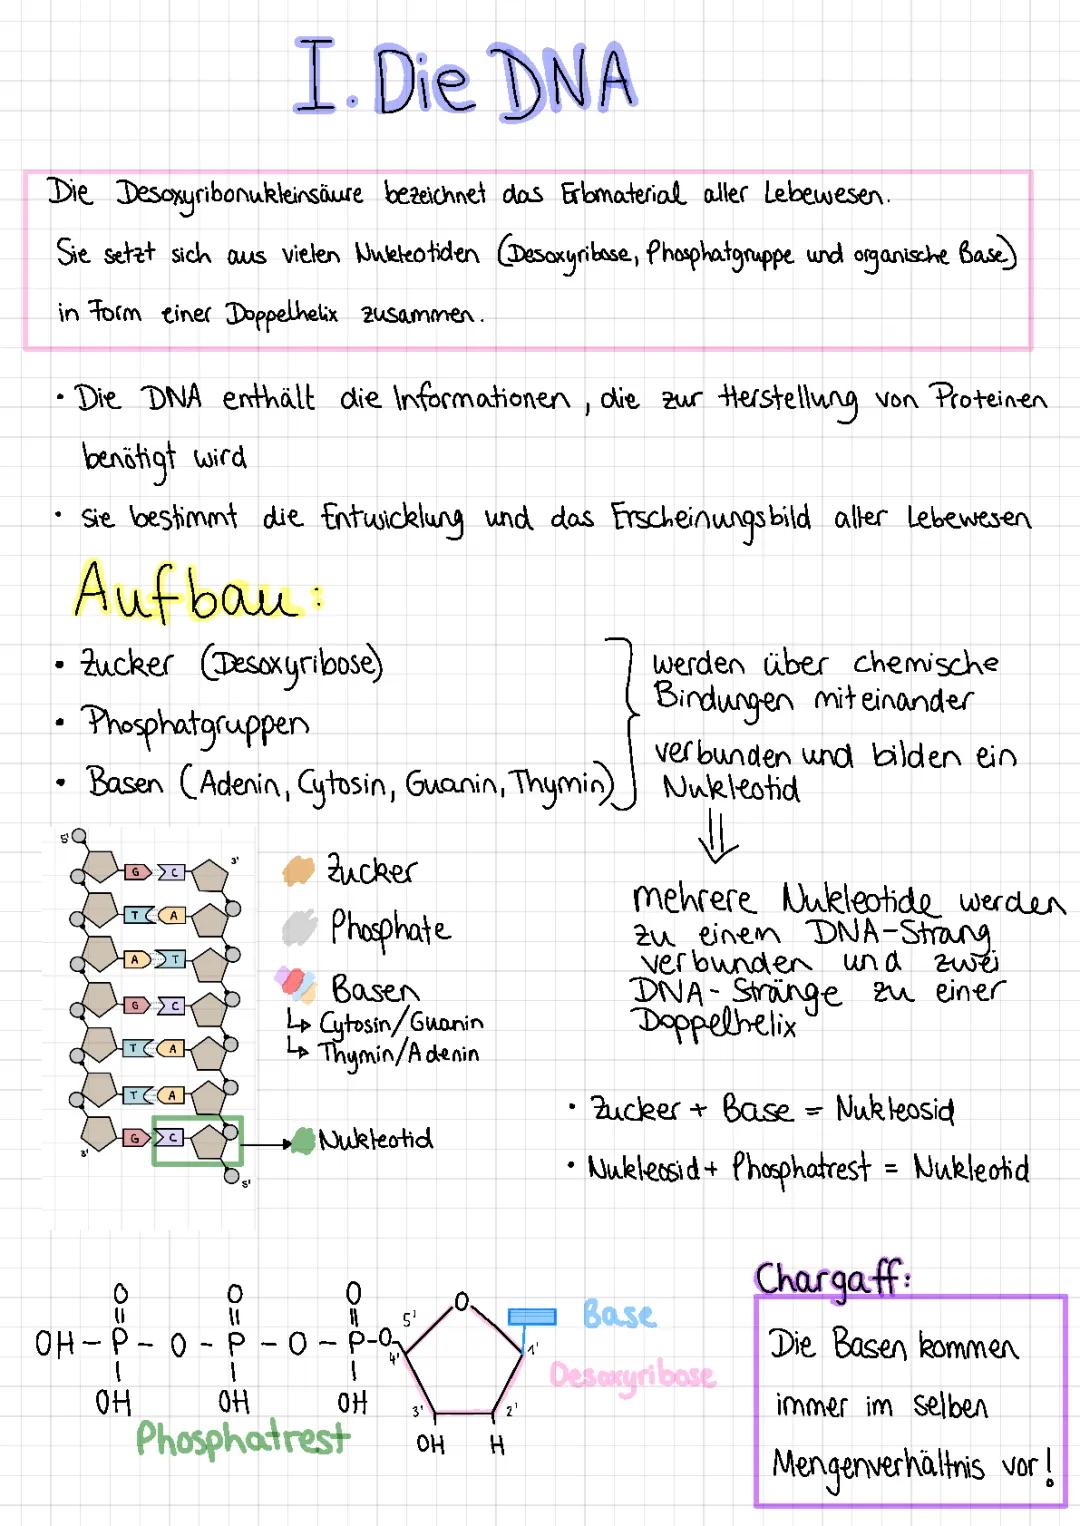 I. Die DNA
Die Desoxyribonukleinsäure bezeichnet das Erbmaterial aller Lebewesen.
Sie setzt sich aus vielen Nukleotiden (Desoxyribose, Phosphatgruppe und organische Base)
in Form einer Doppelhelix zusammen.
• Die DNA enthält die Informationen, die zur Herstellung von Proteinen
benötigt wird
• sie bestimmt die Entwicklung und das Erscheinungsbild aller Lebewesen
Aufbau:
• Zucker (Desoxyribose)
• Phosphatgruppen
• Basen (Adenin, Cytosin, Guanin, Thymin)
werden über chemische
Bindungen miteinander
verbunden und bilden ein
Nukleotid
⇓
mehrere Nukleotide werden
zu einem DNA-Strang
verbunden und zwei
DNA-Stränge zu einer
Doppelhelix
5'
3'
G C
T A
A T
G C
T A
T A
G C
3'
5'
Zucker
Phosphate
Basen
↳ Cytosin/Guanin
↳ Thymin/Adenin
Nukleotid
• Zucker + Base = Nukleosid
• Nukleosid + Phosphatrest = Nukleotid
O O O O
OH-P-O-P-O-P-O
OH OH OH
5'
4'
1'
3' 2'
OH H
Base
Desoxyribose
Phosphatrest
Chargaff:
Die Basen kommen
immer im selben
Mengenverhältnis vor!